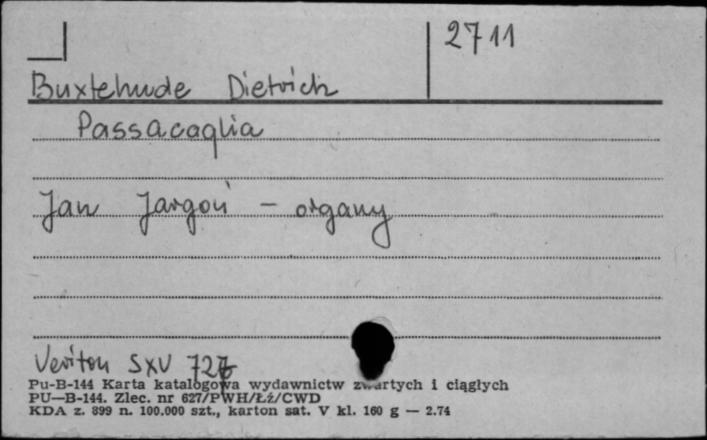 2711
Buxtehude Dietrich
Passacaglia
Jan Jargoń - organy
Veriton SXV
Pu-B-144 Karta katalogowa wydawnictw zwartych i ciągłych
PU—B-144. Zlec. nr 627/PWH/ŁŻ/CWD
KDA z. 899 n. 100.000 szt., karton sat. V kl. 160 g — 2.74